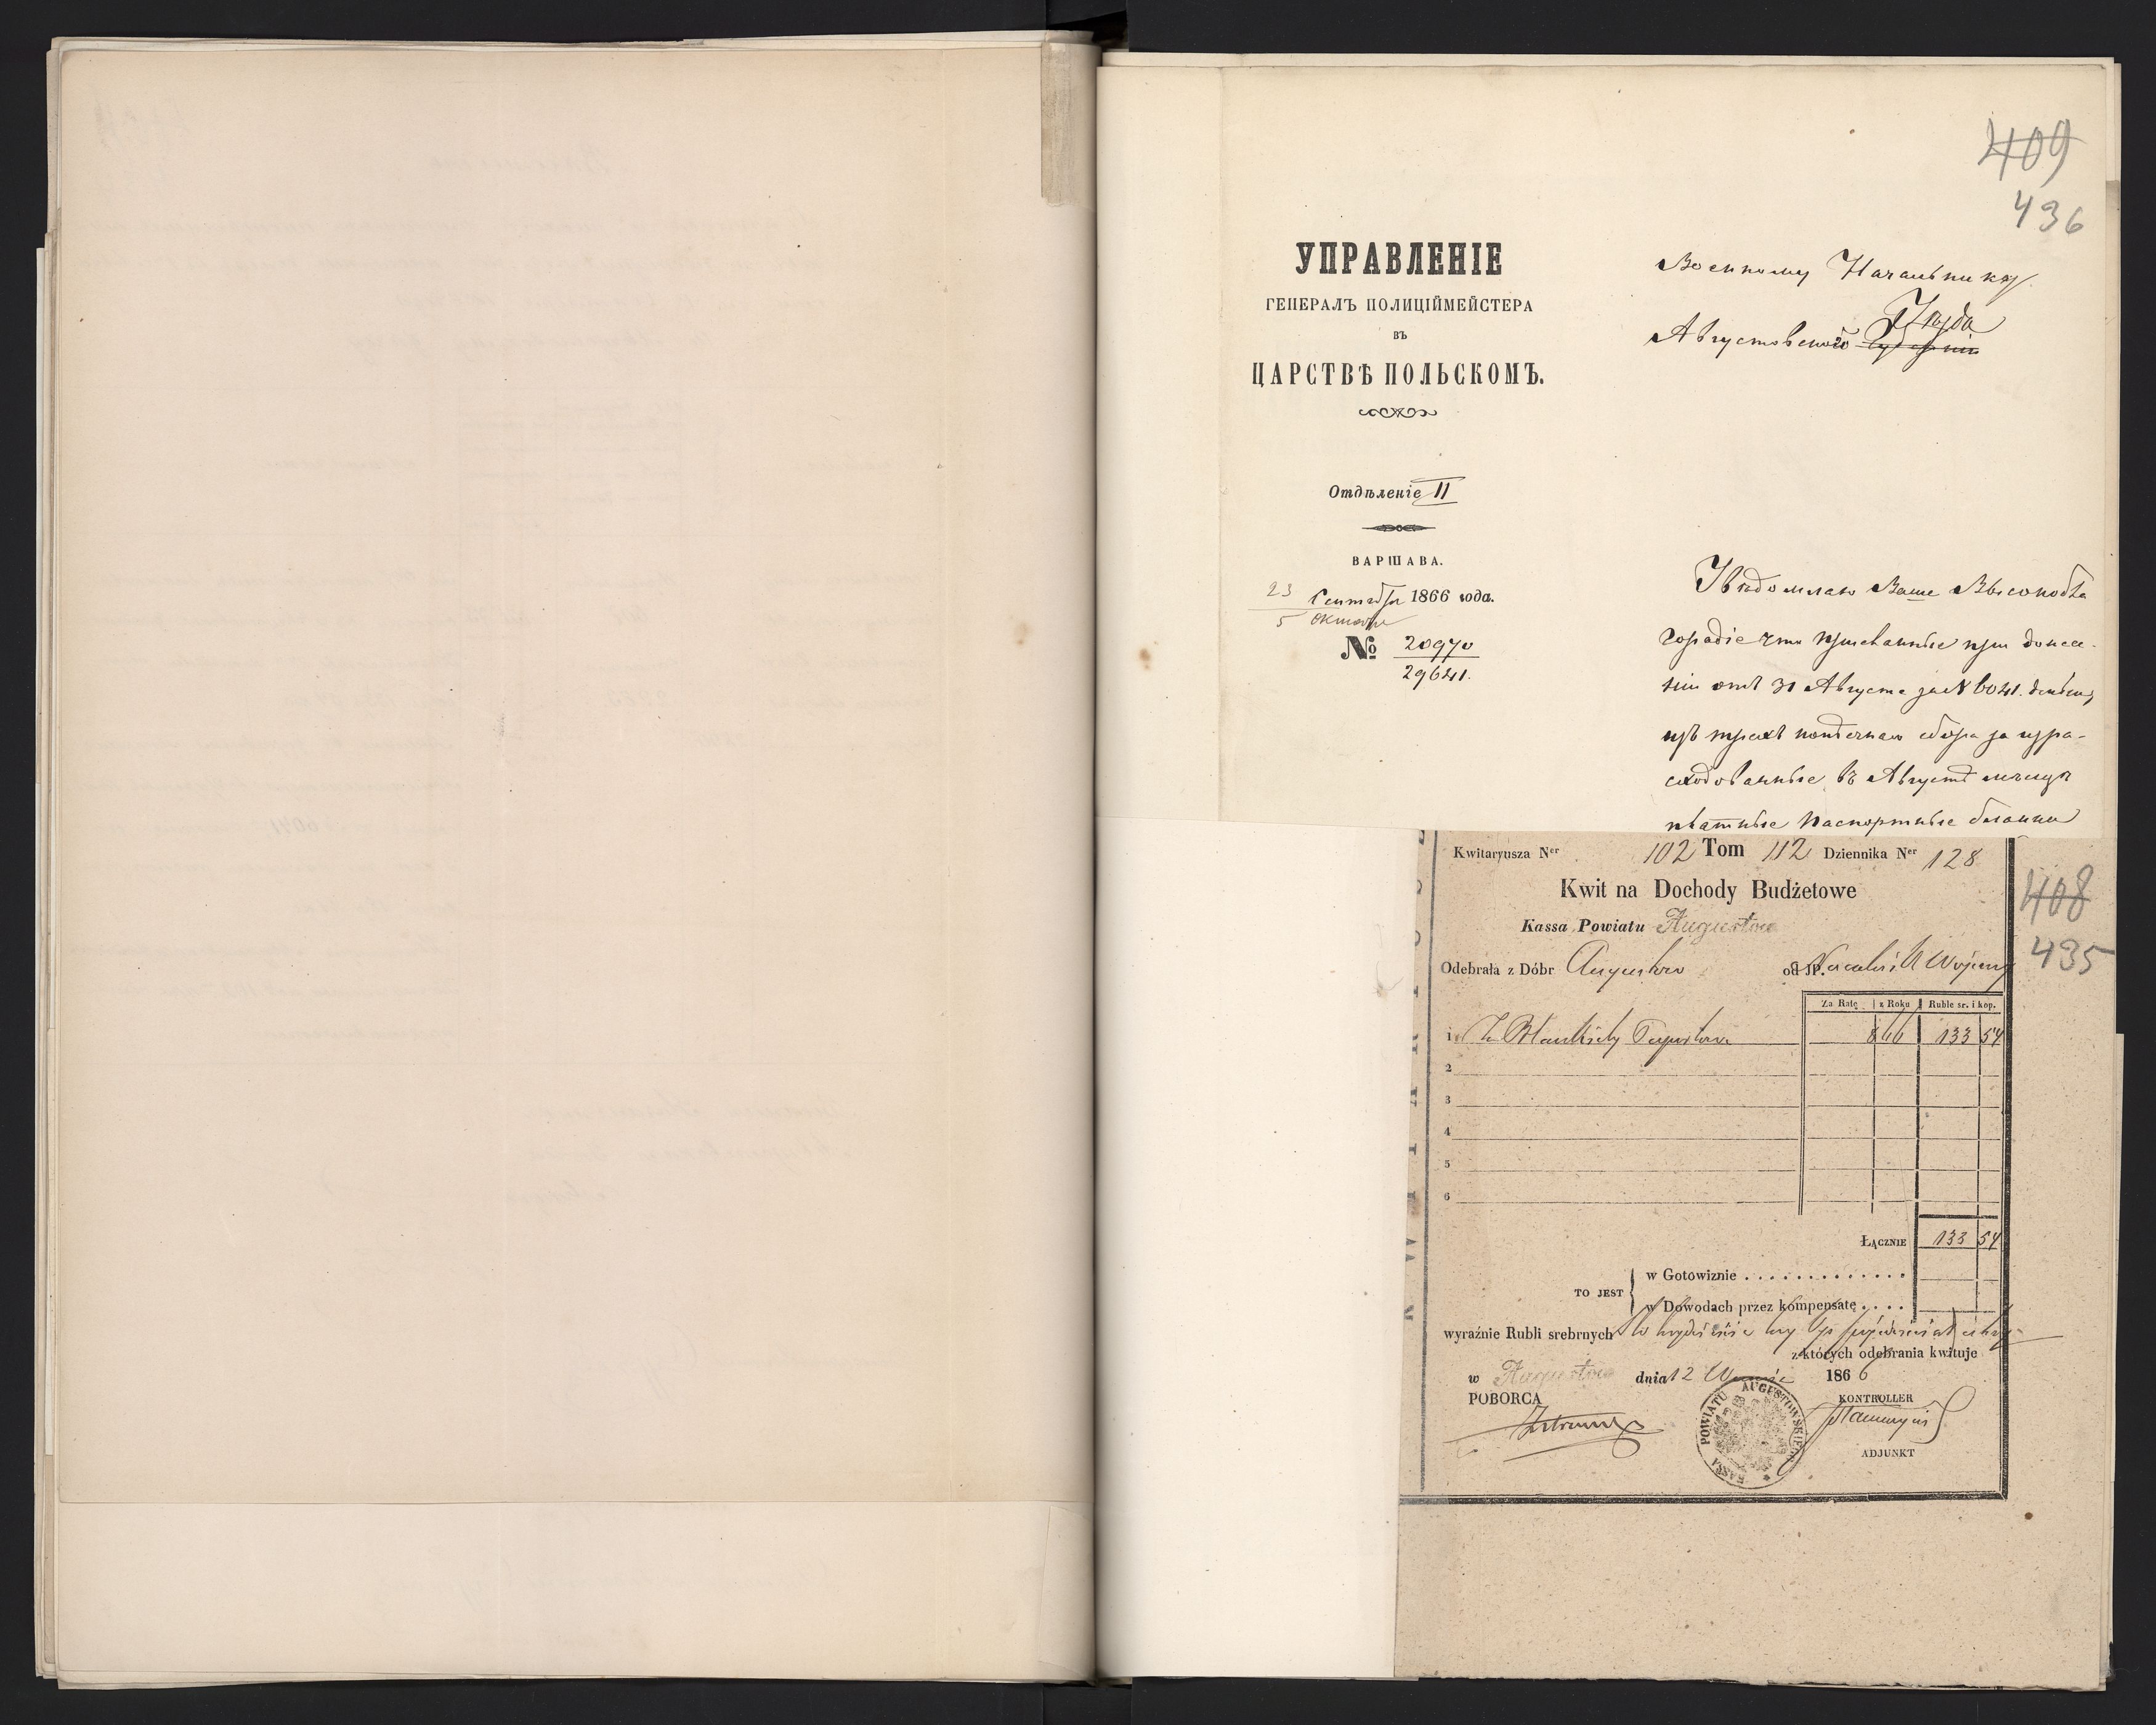 409
436
УПРАВЛЕНІЕ
ГЕНЕРАЛЪ ПОЛИЦІЙМЕЙСТЕРА
ВЪ
ЦАРСТВѢ ПОЛЬСКОМЪ.
Отдѣленіе II
ВАРШАВА.
23 Сентября 1866 года.
5 Октября
№ 20970
29641.
Военному Начальнику
Августовскаго Уѣзда
Увѣдомляю Ваше Высокобла
городіе что присланные при донесе-
ніи отъ 31 Августа за № 6041. деньги,
сбора за изра-
сходованные въ Августѣ мѣсяцѣ
платные паспортные бланки
Kwitaryusza Ner 102 Tom 112 Dziennika Ner 128
Kwit na Dochody Budżetowe
Kassa Powiatu Augustow
Odebrała z Dóbr Augustow od JP. Naczelnik Wojenny
408
435
Za Ratę z Roku Ruble sr. i kop.
1 Za Blankiety Paszportowe 866 133 54
2
3
4
5
6
ŁĄCZNIE 133 54
TO JEST
w Gotowiznie
w Dowodach przez kompensatę
wyraźnie Rubli srebrnych Sto trzydzieści trzy kop pięćdziesiąt cztery
z których odebrania kwituje
w Augustow dnia 12 1866
POBORCA
KONTROLLER
ADJUNKT
KASSA POWIATU AUGUSTOWSKIEGO